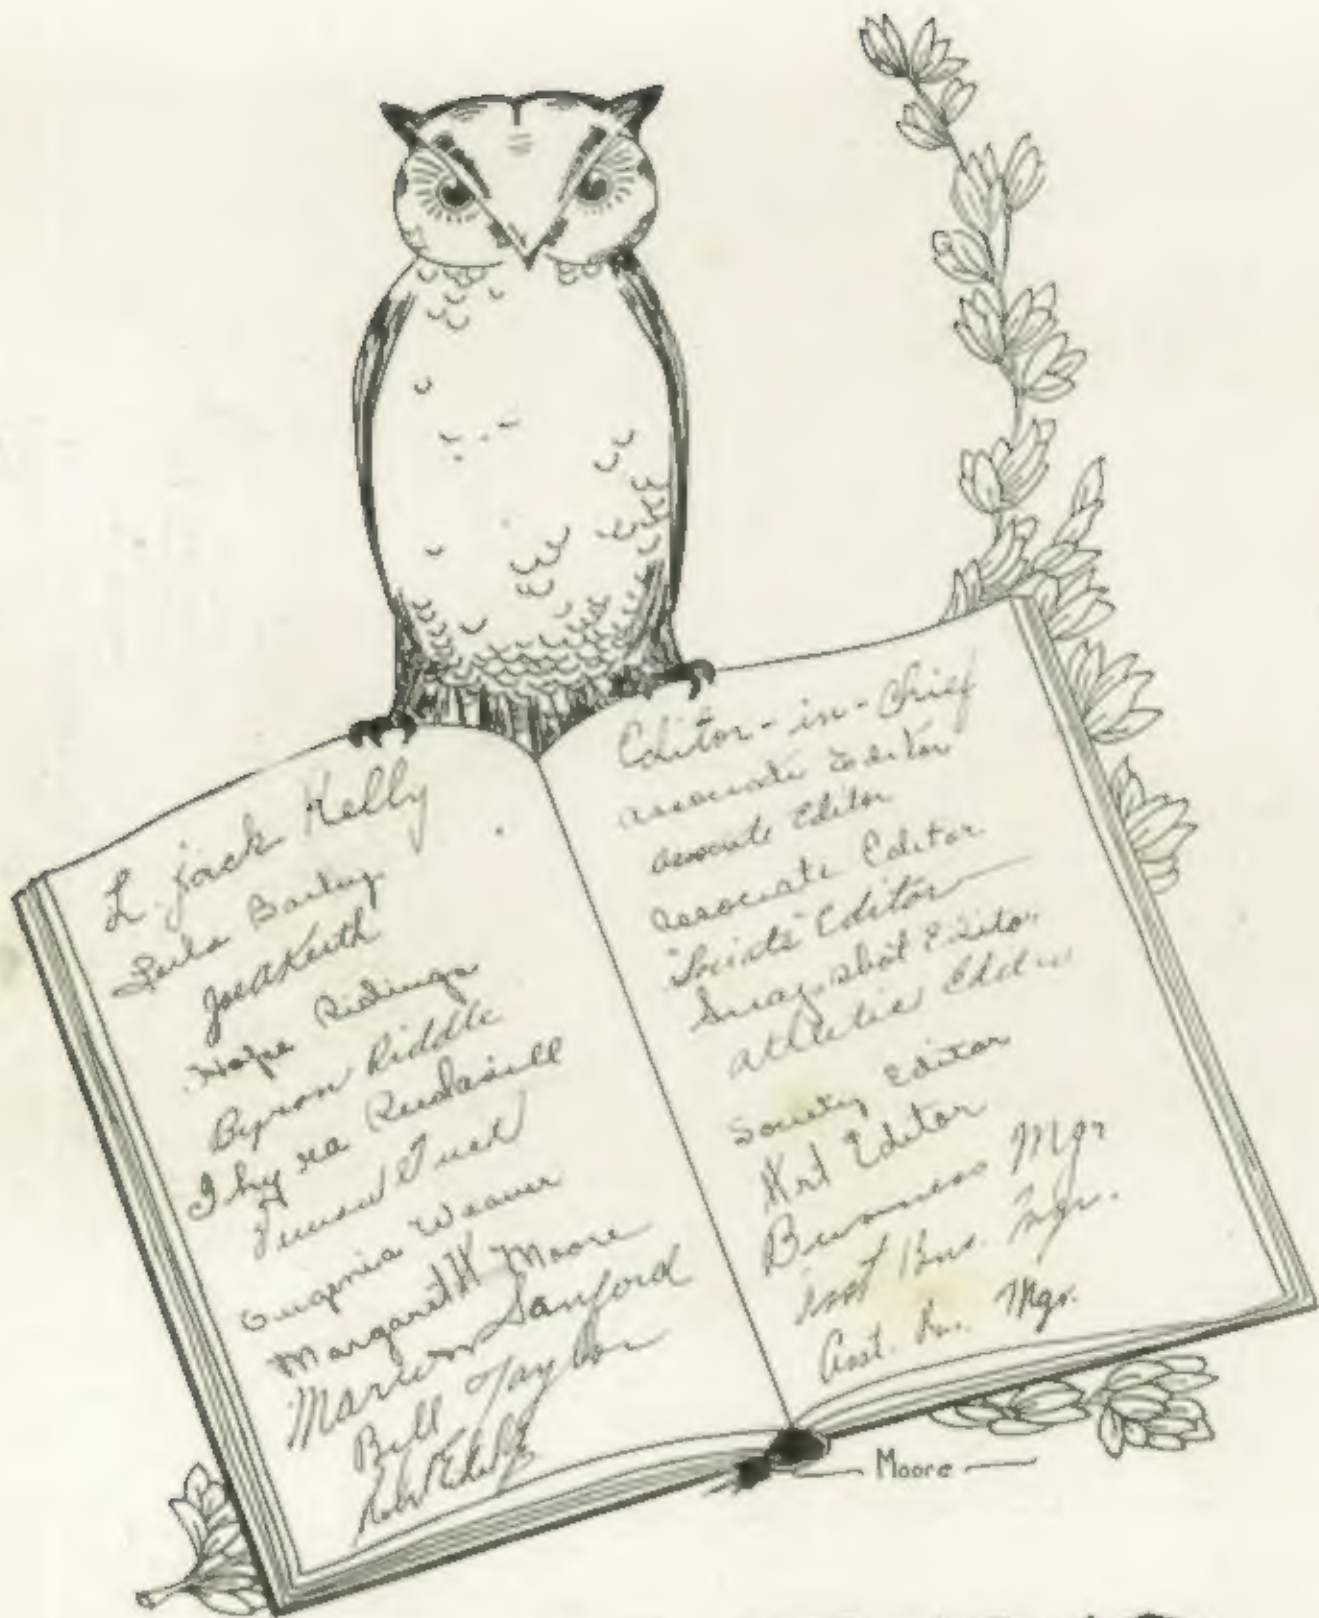 L. Jack Kelly
Leila Bailey
Joe A Keith
Hope Ridings
Byron Riddle
Thyra Rudasill
Tuck
Eugenia Weaver
Margaret K Moore
Marion Sanford
Bill Taylor
Editor-in-Chief
Associate Editor
Associate Editor
Associate Editor
Editor
Snap-shot Editor
Athletic Editor
Society Editor
Art Editor
Business Mgr
Asst Bus. Mgr.
Asst. Bus. Mgr.
Moore